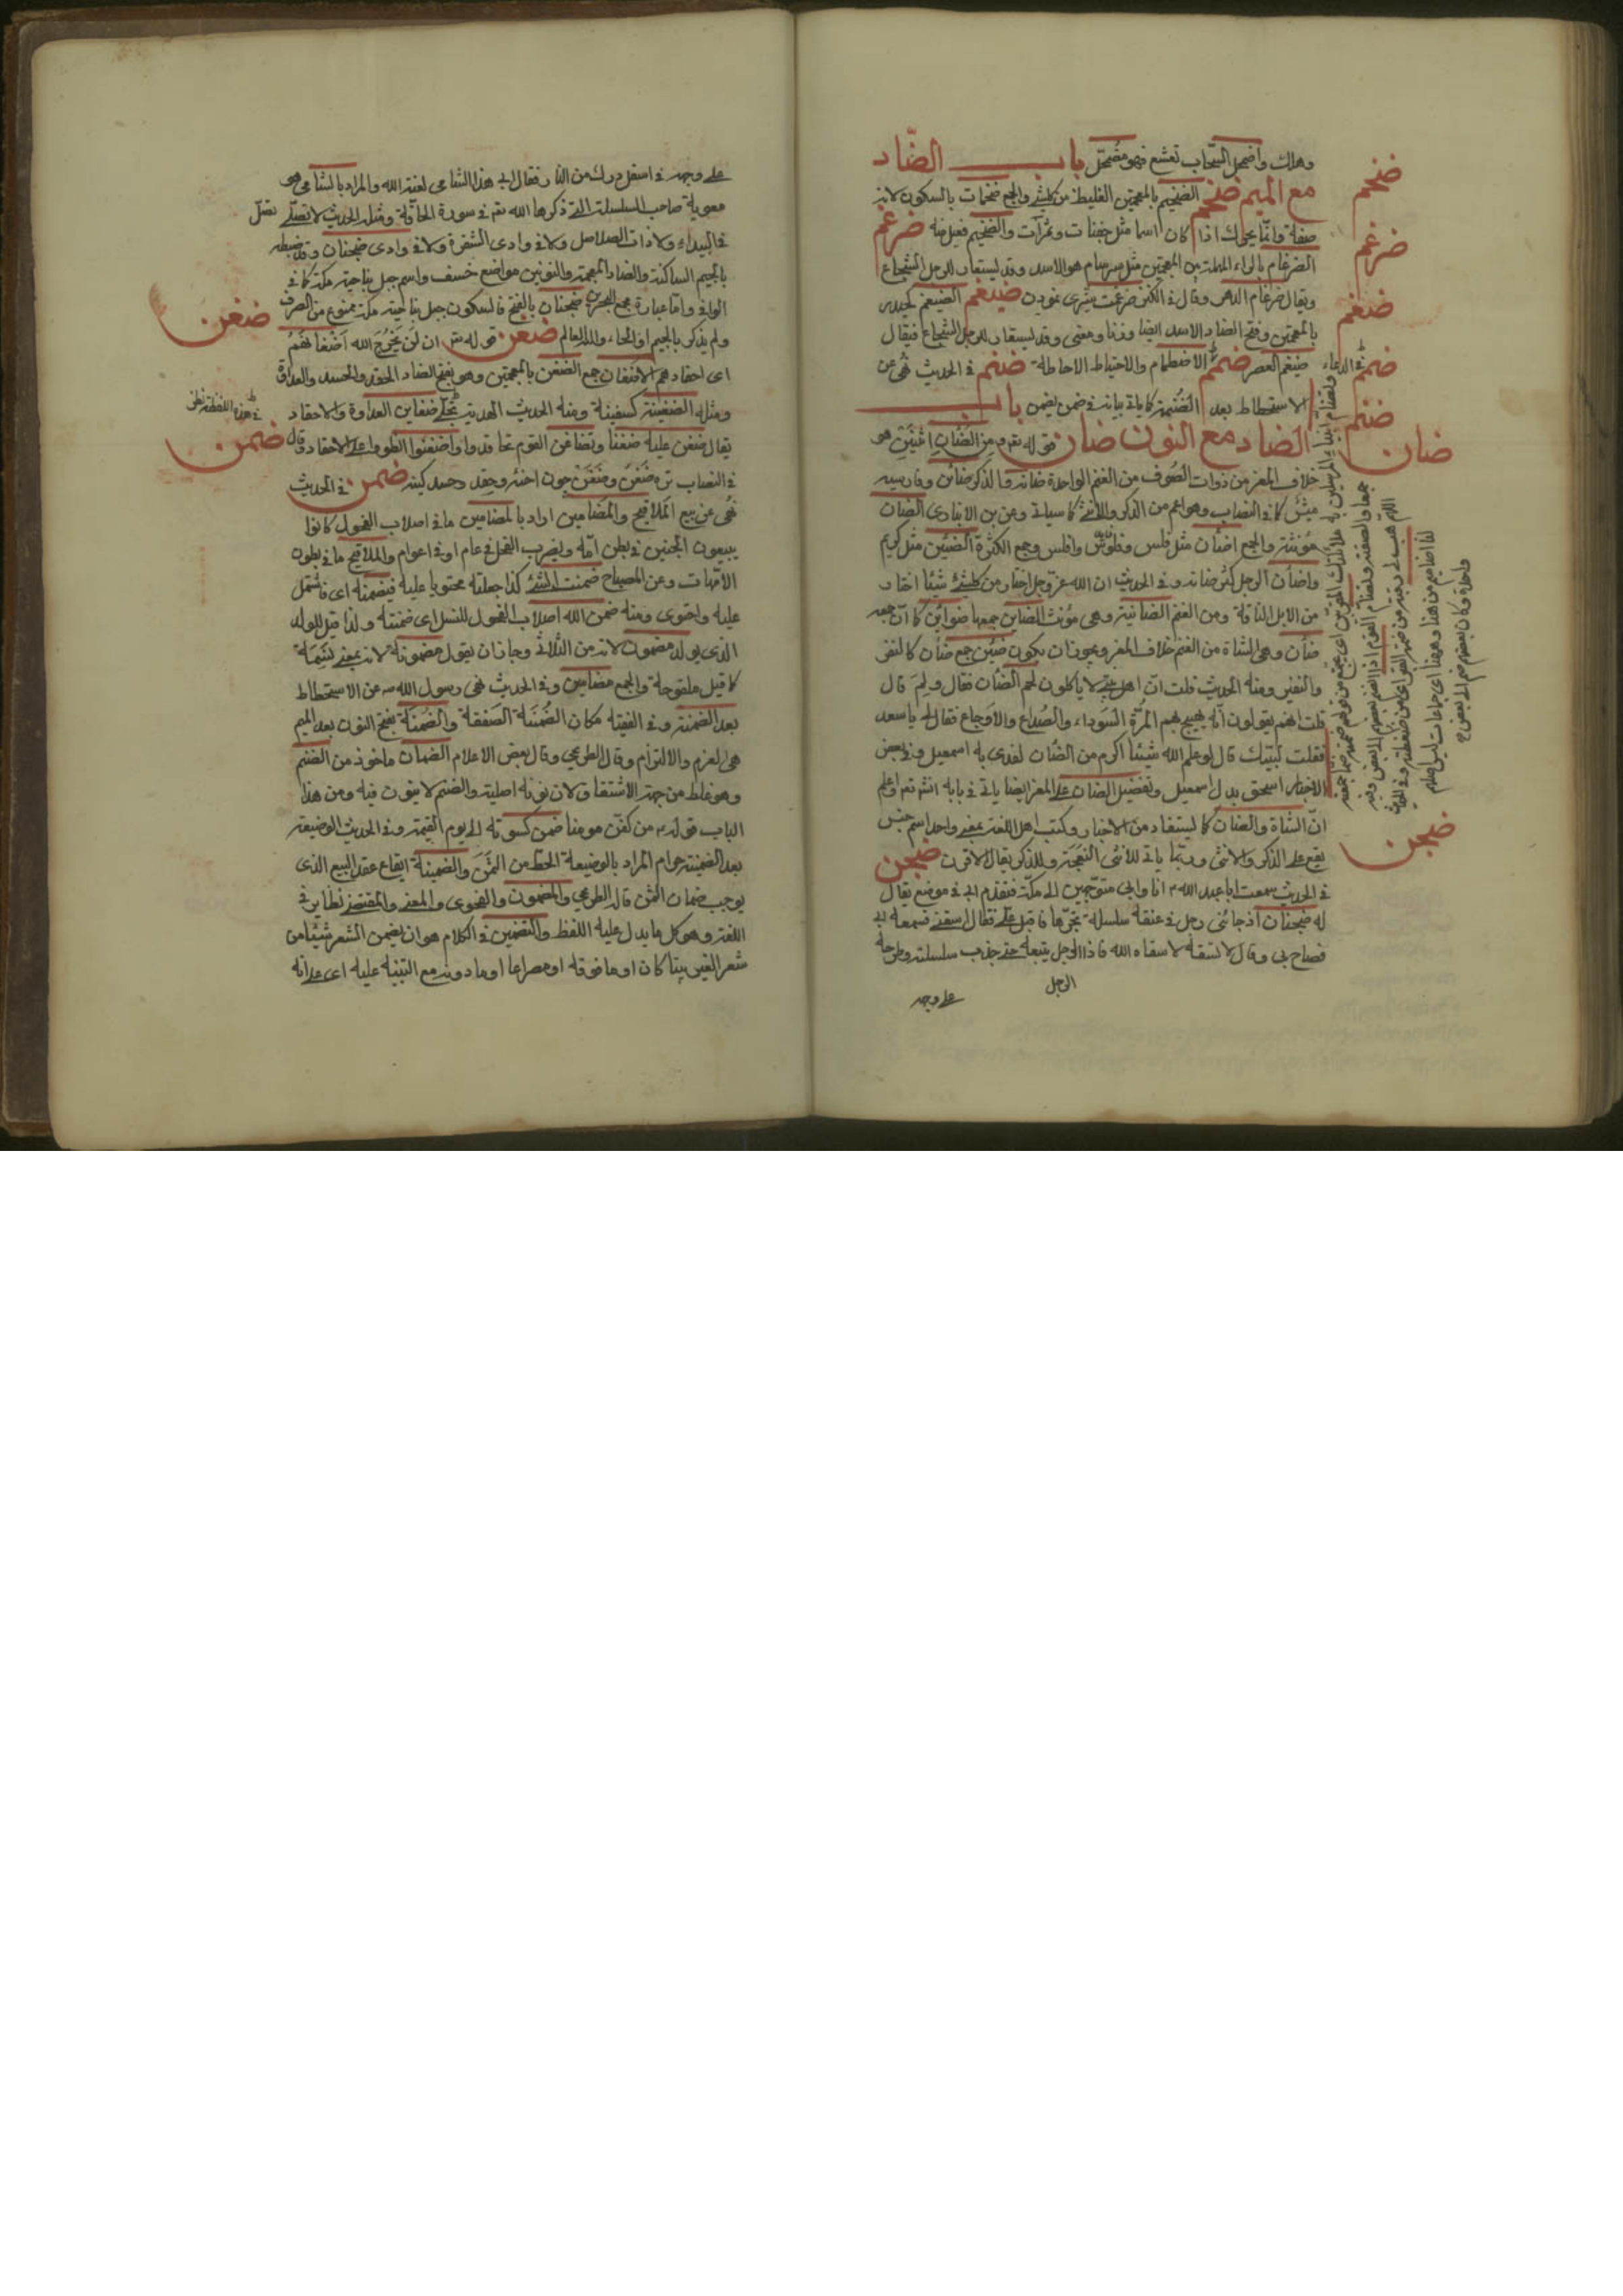 وهلك واضمحل السحاب تقشع فهو مضمحل باب الضاد
مع الميم ضخم الضخيم بالمعجمتين الغليظ من كلشئ والجمع ضخمات بالسكون لانه
صفة وانما يحرك اذا كان اسما مثل جفنات وتمرات والضخيم فعيل منه ضرغم
الضرغام بالراء المهملة بين المعجمتين مثل هو الاسد وقد يستعار للرجل الشجاع
ويقال ضرغام الدهر وقال في الكنز ضرغمت شيرى نمودن ضيغم الضيغم كحيدر
بالمعجمتين وفتح الضاد الاسد ايضا وزنا ومعنى وقد يستعار للرجل الشجاع فيقال
ضيغم العصر ضمم الاضطمام والاحتياط الاحاطة ضنم في الحديث نهى عن
الاستحطاط بعد الضنمة كما ياتى بيانه في ضمن يضمن باب
الضاد مع النون ضان قوله تعه من الضان اثنين هى
خلاف المعز من ذوات الصوف من الغنم الواحدة ضانه والذكر ضائن وفارسيه
ميش كما في النصاب وهو اعم من الذكر والانثى كما سياتى وعن بن الانبارى الضان
مؤنثة والجمع اضئان مثل فلس وفلوس وافلس وجمع الكثرة الضئين مثل كريم
واضأن الرجل كثر ضانه وفي الحديث ان الله عز وجل اختار من كلشئ شيئا اختار
من الابل الناقة ومن الغنم الضانية وهى مؤنث الضاين جمعها ضوائن كما ان جمعه
ضأن وهى الشاة من الغنم خلاف المعز ويجوز ان يكون ضئين جمع ضان كالنفر
والنفير ومنه الحديث قلت ان اهل بيتى لا ياكلون لحم الضان فقال ولم قال
قلت انهم يقولون انه يهيج بهم المرة السوداء والصداع والاوجاع فقال لى يا سعد
فقلت لبيك قال لو علم الله شيئا اكرم من الضان لفدى به اسمعيل وفي بعض
الاخبار اسحق بدل اسمعيل وتفضيل الضان على المعز ايضا ياتى في بابه انشه تعه واعلم
ان الشاة والضان كما يستفاد من الاخبار وكتب اهل اللغة بمعنى واحد اسم جنس
يقع على الذكر والانثى وربما ياتى للانثى النعجة وللذكر يقال الاقرن ضجن
في الحديث سمعت ابا عبد الله ع انا وابى متوجهين الى مكة فتقدم ابى في موضع يقال
له ضجنان اذ جائنى رجل في عنقه سلسلة يجرها فاقبل على فقال اسقنى فسمعه ابى
فصاح بى وقال لا تسقه لا سقاه الله فاذا الرجل يتبعه حتى جذب سلسلته وطرحه
الرجل
على وجهه
ضخم
ضرغم
ضغم
ضمم
ضنم
ضان
ضجن
على وجهه في اسفل درك من النار فقال ابى هذا الشامى لعنه الله والمراد بالشامى هو
معوية صاحب السلسلة التى ذكرها الله تعه في سورة الحاقة ومثله الحديث لا تصلى
في البيداء ولا ذات الصلاصل ولا في وادى الشقرة ولا في وادى ضجنان وقد ضبطه
بالجيم الساكنة والضاد المعجمة والنونين مواضع خسف واسم جبل بناحية مكة كما في
الوافى واما عبارة مجمع البحرين ضجنان بالفتح فالسكون جبل بناحية مكة ممنوع من الصرف
ولم يذكر بالجيم او الحاء والله العالم ضغن قوله تعه ان لن يخرج الله اضغانهم
اى احقادهم الاضغان جمع الضغن بالمعجمتين وهو بفتح الضاد الحقد والحسد والعداوة
ومثله الضغينة كسفينة ومنه الحديث الهدية تجلى ضغاين العداوة والاحقاد
يقال ضغن عليه ضغنا وتضاغن القوم تحاقدوا واضغنوا انطووا على الاحقاد وقال
في النصاب تره ضغن وضغن چون احنه وحقد وحسد كينه ضمن في الحديث
نهى عن بيع الملاقيح والمضامين اراد بالمضامين ما في اصلاب الفحول كانوا
يبيعون الجنين في بطن امه وبضرب الفحل في عام او في اعوام والملاقيح ما في بطون
الامهات وعن المصباح ضمنت الشئ كذا جعلته محتويا عليه فيضمنه اى فاشتمل
عليه واحتوى ومنه ضمن الله اصلاب الفحول النسل اى ضمنته ولذا قيل للولد
الذى يولد مضمون لانه من الثلاثى وجاز ان يقول مضمونة لانه بمعنى نسمة
كما قيل ملقوحة والجمع مضامين وفي الحديث نهى رسول الله ص عن الاستحطاط
بعد الضمنة وفي الفقيه مكان الضمنة الصفقة والضمنة بفتح النون بعد الميم
هى الغرم والالتزام وقال الطريحى وقال بعض الاعلام الضمان ماخوذ من الضم
وهو غلط من جهة الاشتقاق لان نونه اصلية والضم لا نون فيه ومن هذا
الباب قوله ع من كفن مومنا ضمن كسوته الى يوم القيمة وفي الحديث الوضيعة
بعد الضمينة حرام المراد بالوضيعة الحط من الثمن والضمينة ايقاع عقد البيع الذى
يوجب ضمان الثمن قاله الطريحى والمضمون والفحوى والمعنى والمقتضى نظاير في
اللغة وهو كل ما يدل عليه اللفظ والتضمين في الكلام هو ان يضمن الشعر شيئا من
شعر الغير بيتا كان او ما فوقه او مصراعا او ما دونه مع التنبيه عليه اى على انه
ضغن
ضمن